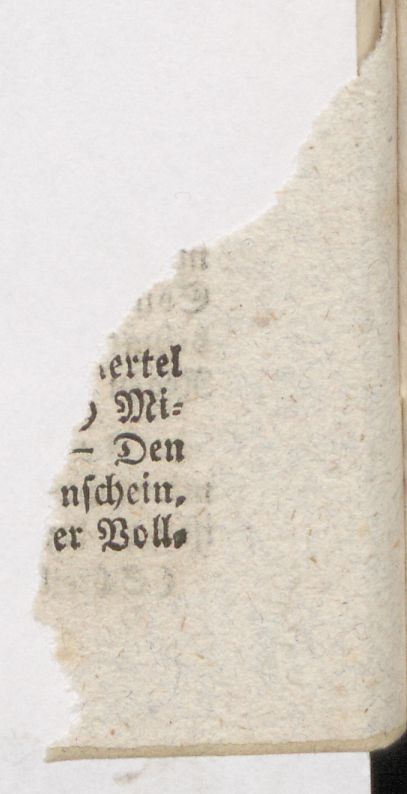 ertel
) Mi-
– Den
nschein.
er Voll-